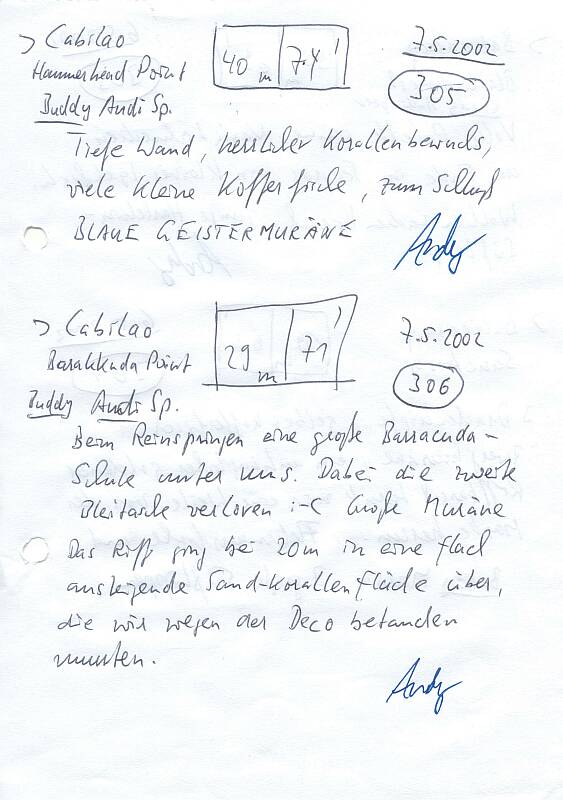 > Cabilao
40 m 74'
7.5.2002
Hammerhead Point
305
Buddy Andi Sp.
Tiefe Wand, herrlicher Korallenbewuchs,
viele kleine Kofferfische, zum Schluß
BLAUE GEISTERMURÄNE
Andy
> Cabilao
29 m 71'
7.5.2002
Barakkuda Point
306
Buddy Andi Sp.
Beim Reinspringen eine große Barracuda-
Schule unter uns. Dabei die zweite
Bleitasche verloren :-( Große Muräne
Das Riff ging bei 20m in eine flach
ansteigende Sand-Korallenfläche über,
die wir wegen der Deco betauchen
mussten.
Andy